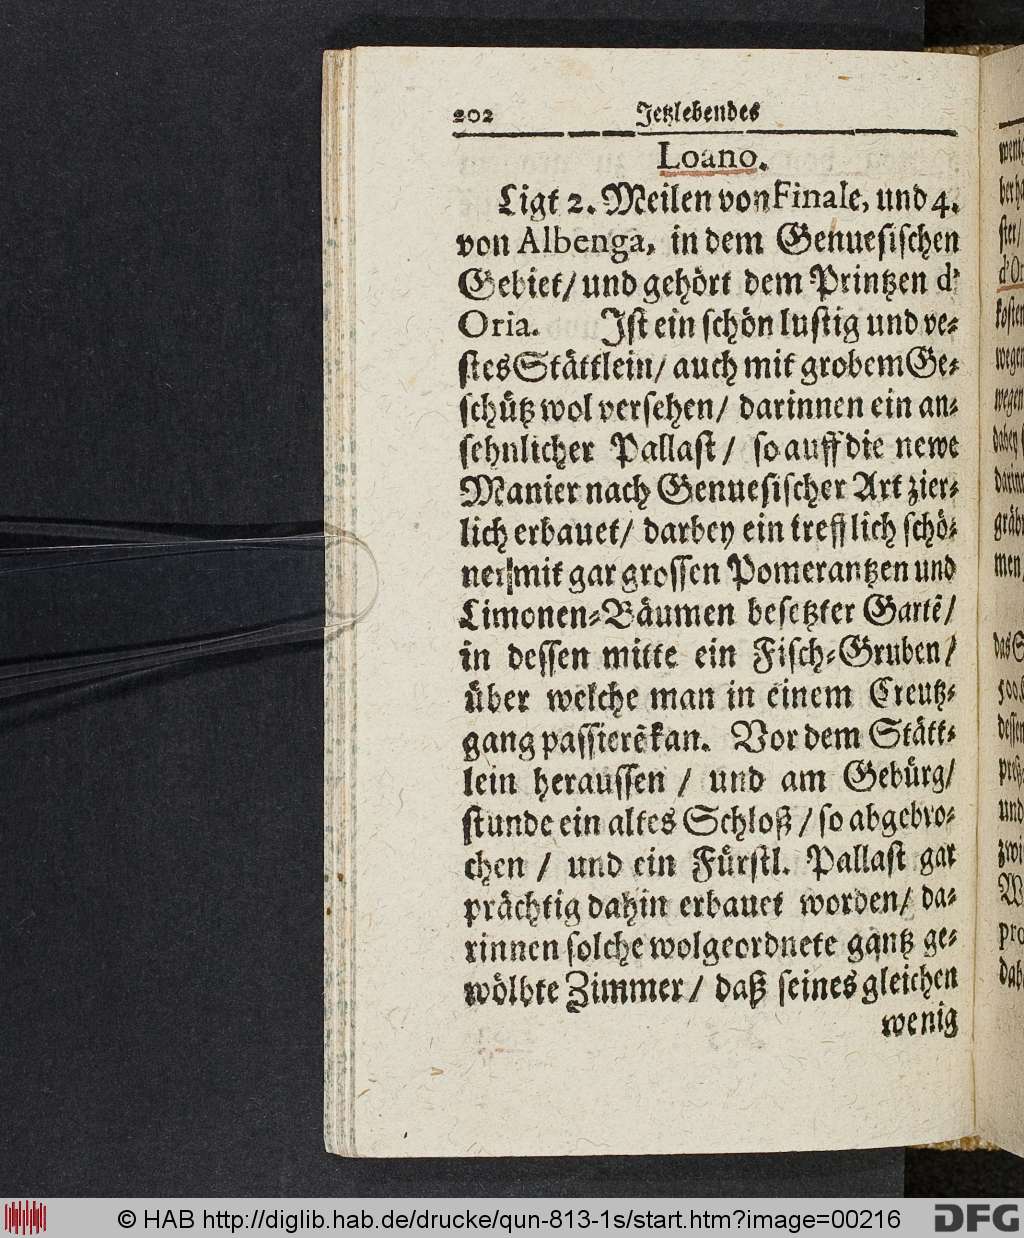 202 Jetzlebendes
Loano.
Ligt 2. Meilen von Finale, und 4.
von Albenga, in dem Genuesischen
Gebiet/ und gehört dem Printzen d'
Oria. Ist ein schön lustig und ve-
stes Stättlein/ auch mit grobem Ge-
schütz wol versehen/ darinnen ein an-
sehnlicher Pallast/ so auff die newe
Manier nach Genuesischer Art zier-
lich erbauet/ darbey ein trefflich schö-
ner mit gar grossen Pomerantzen und
Limonen-Bäumen besetzter Gartē/
in dessen mitte ein Fisch-Gruben/
über welche man in einem Creutz-
gang passierē kan. Vor dem Stätt-
lein heraussen / und am Gebürg/
stunde ein altes Schloß / so abgebro-
chen / und ein Fürstl. Pallast gar
prächtig dahin erbauet worden/ da-
rinnen solche wolgeordnete gantz ge-
wölbte Zimmer/ daß seines gleichen
wenig
© HAB http://diglib.hab.de/drucke/qun-813-1s/start.htm?image=00216
DFG